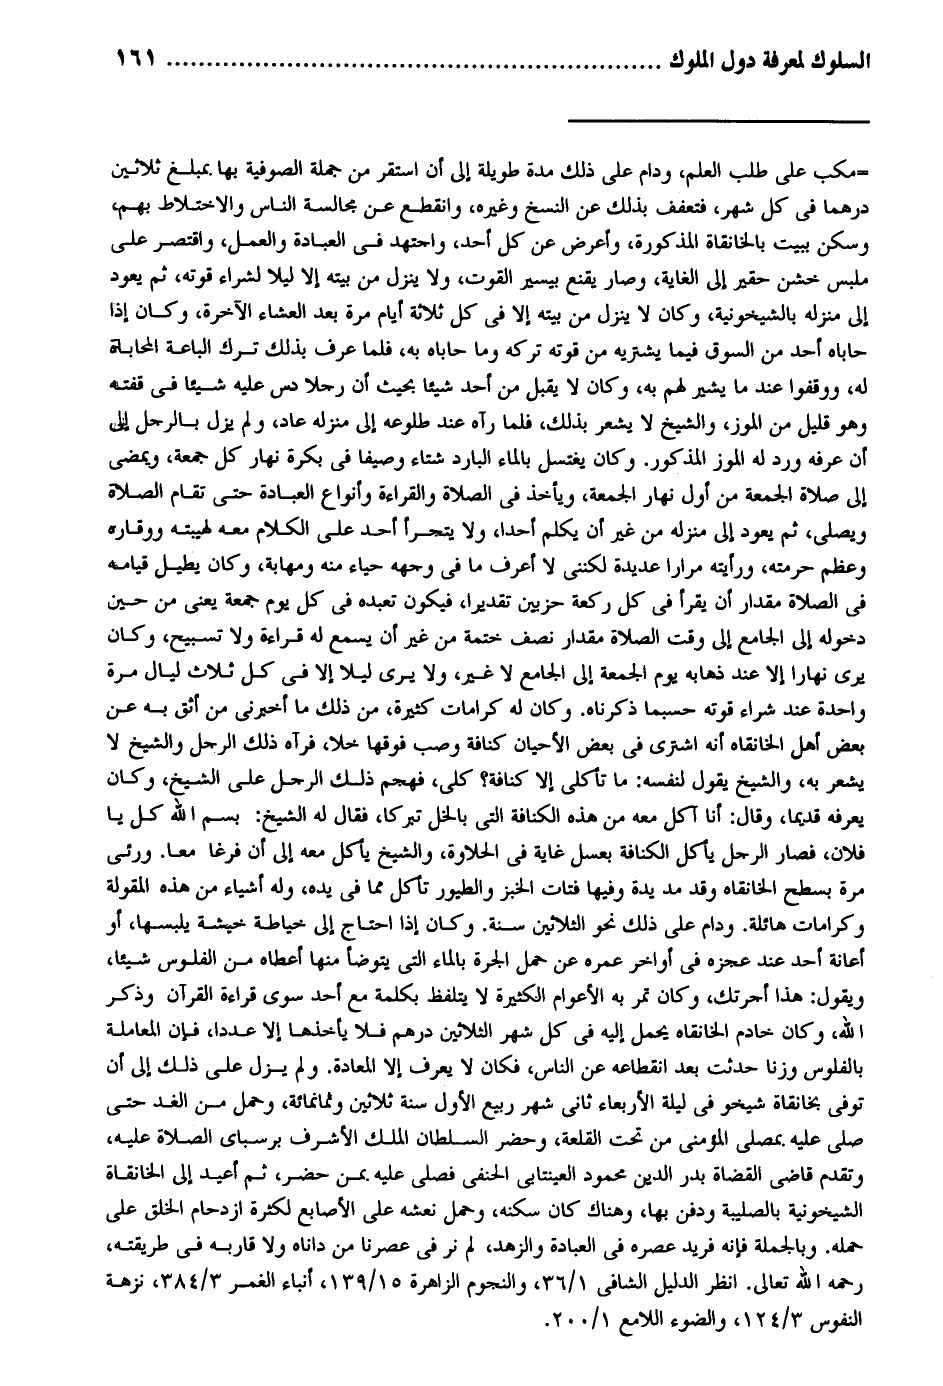 السلوك لمعرفة دول الملوك ............................................................. ١٦١
=مكب على طلب العلم، ودام على ذلك مدة طويلة إلى أن استقر من جملة الصوفية بها بمبلغ ثلاثين
درهما فى كل شهر، فتعفف بذلك عن النسخ وغيره، وانقطع عن مجالسة الناس والاختلاط بهم،
وسكن ببيت بالخانقاة المذكورة، وأعرض عن كل أحد، واجتهد فى العبادة والعمل، واقتصر على
ملبس خشن حقير إلى الغاية، وصار يقنع بيسير القوت، ولا ينزل من بيته إلا ليلا لشراء قوته، ثم يعود
إلى منزله بالشيخونية، وكان لا ينزل من بيته إلا فى كل ثلاثة أيام مرة بعد العشاء الآخرة، وكان إذا
حاباه أحد من السوق فيما يشتريه من قوته تركه وما حاباه به، فلما عرف بذلك ترك الباعة المحاباة
له، ووقفوا عند ما يشير لهم به، وكان لا يقبل من أحد شيئا بحيث أن رجلا دس عليه شيئا فى قفته
وهو قليل من الموز، والشيخ لا يشعر بذلك، فلما رآه عند طلوعه إلى منزله عاد، ولم يزل بالرجل إلى
أن عرفه ورد له الموز المذكور. وكان يغتسل بالماء البارد شتاء وصيفا فى بكرة نهار كل جمعة، ويمضى
إلى صلاة الجمعة من أول نهار الجمعة، ويأخذ فى الصلاة والقراءة وأنواع العبادة حتى تقام الصلاة
ويصلى، ثم يعود إلى منزله من غير أن يكلم أحدا، ولا يتجرأ أحد على الكلام معه لهيبته ووقاره
وعظم حرمته، ورأيته مرارا عديدة لكننى لا أعرف ما فى وجهه حياء منه ومهابة، وكان يطيل قيامه
فى الصلاة مقدار أن يقرأ فى كل ركعة حزبين تقديرا، فيكون تعبده فى كل يوم جمعة يعنى من حين
دخوله إلى الجامع إلى وقت الصلاة مقدار نصف ختمة من غير أن يسمع له قراءة ولا تسبيح، وكان
يرى نهارا إلا عند ذهابه يوم الجمعة إلى الجامع لا غير، ولا يرى ليلا إلا فى كل ثلاث ليال مرة
واحدة عند شراء قوته حسبما ذكرناه. وكان له كرامات كثيرة، من ذلك ما أخبرنى من أثق به عن
بعض أهل الخانقاه أنه اشترى فى بعض الأحيان كنافة وصب فوقها خلا، فرآه ذلك الرجل والشيخ لا
يشعر به، والشيخ يقول لنفسه: ما تأكلى إلا كنافة؟ كلى، فهجم ذلك الرجل على الشيخ، وكان
يعرفه قديما، وقال: أنا آكل معه من هذه الكنافة التى بالخل تبركا، فقال له الشيخ: بسم الله كل يا
فلان، فصار الرجل يأكل الكنافة بعسل غاية فى الحلاوة، والشيخ يأكل معه إلى أن فرغا معا. ورئى
مرة بسطح الخانقاه وقد مد يدة وفيها فتات الخبز والطيور تأكل مما فى يده، وله أشياء من هذه المقولة
وكرامات هائلة. ودام على ذلك نحو الثلاثين سنة. وكان إذا احتاج إلى خياطة خيشة يلبسها، أو
أعانة أحد عند عجزه فى أواخر عمره عن حمل الجرة بالماء التى يتوضأ منها أعطاه من الفلوس شيئا،
ويقول: هذا أجرتك، وكان تمر به الأعوام الكثيرة لا يتلفظ بكلمة مع أحد سوى قراءة القرآن وذكر
الله، وكان خادم الخانقاه يحمل إليه فى كل شهر الثلاثين درهم فلا يأخذها إلا عددا، فإن المعاملة
بالفلوس وزنا حدثت بعد انقطاعه عن الناس، فكان لا يعرف إلا المعادة. ولم يزل على ذلك إلى أن
توفى بخانقاة شيخو فى ليلة الأربعاء ثانى شهر ربيع الأول سنة ثلاثين وثمانمائة، وحمل من الغد حتى
صلى عليه بمصلى المؤمنى من تحت القلعة، وحضر السلطان الملك الأشرف برسباى الصلاة عليه،
وتقدم قاضى القضاة بدر الدين محمود العينتابى الحنفى فصلى عليه بمن حضر، ثم أعيد إلى الخانقاة
الشيخونية بالصليبة ودفن بها، وهناك كان سكنه، وحمل نعشه على الأصابع لكثرة ازدحام الخلق على
حمله. وبالجملة فإنه فريد عصره فى العبادة والزهد، لم نر فى عصرنا من داناه ولا قاربه فى طريقته،
رحمه الله تعالى. انظر الدليل الشافى ٣٦/١، والنجوم الزاهرة ١٣٩/١٥، أنباء الغمر ٣٨٤/٣، نزهة
النفوس ١٢٤/٣، والضوء اللامع ٢٠٠/١.